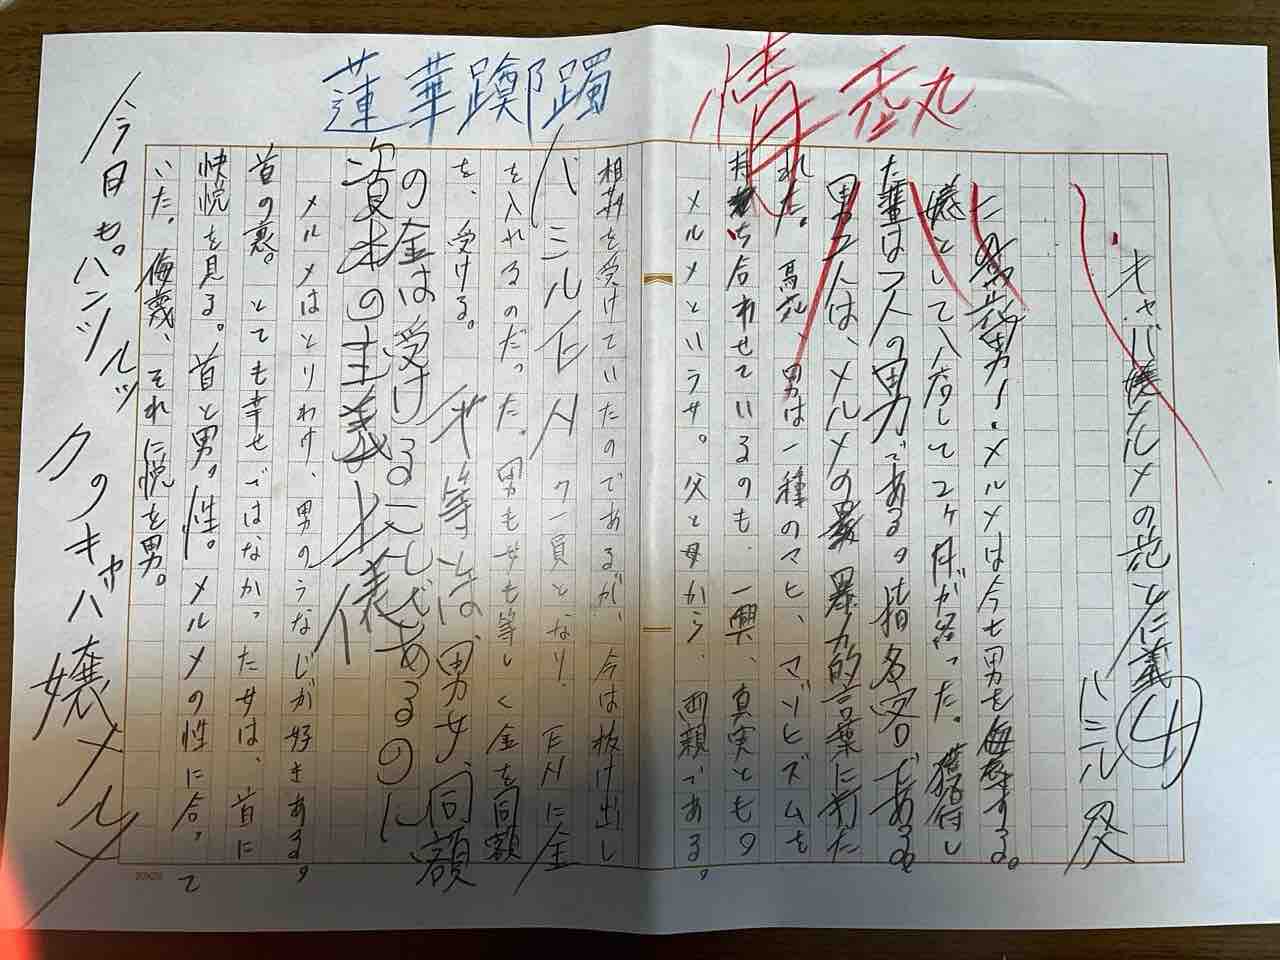 蓮華躑躅
情熱
キャバ嬢メルメの花と仁義④
バミル
メルメは今も男を侮辱する。
嬢として入店して2ヶ月が経った。
た輩は2人の男である。指名客である。
男二人は、メルメの暴力的言葉に打た
れた。馬鹿、男は一種のマヒ、マゾヒズムを
持ち合わせているのも、一興、真実もの
メルメという女。父と母から、両親である。
相 を受けていたのであるが、今は抜け出し
バミル ク一員となり、 に金
を入れるのだった。男も女も等しく金を同額
を、受ける。 等は男女、同額
の金は受けることであるのに
資本の主義上
メルメはとりわけ、男のうなじが好きある。
首の裏。とても幸せではなかった女は、首に
快悦を見る。首と男。性。メルメの性に合って
いた。侮蔑、それに悦を男。
今日も。パンツルックのキャバ嬢メルメ